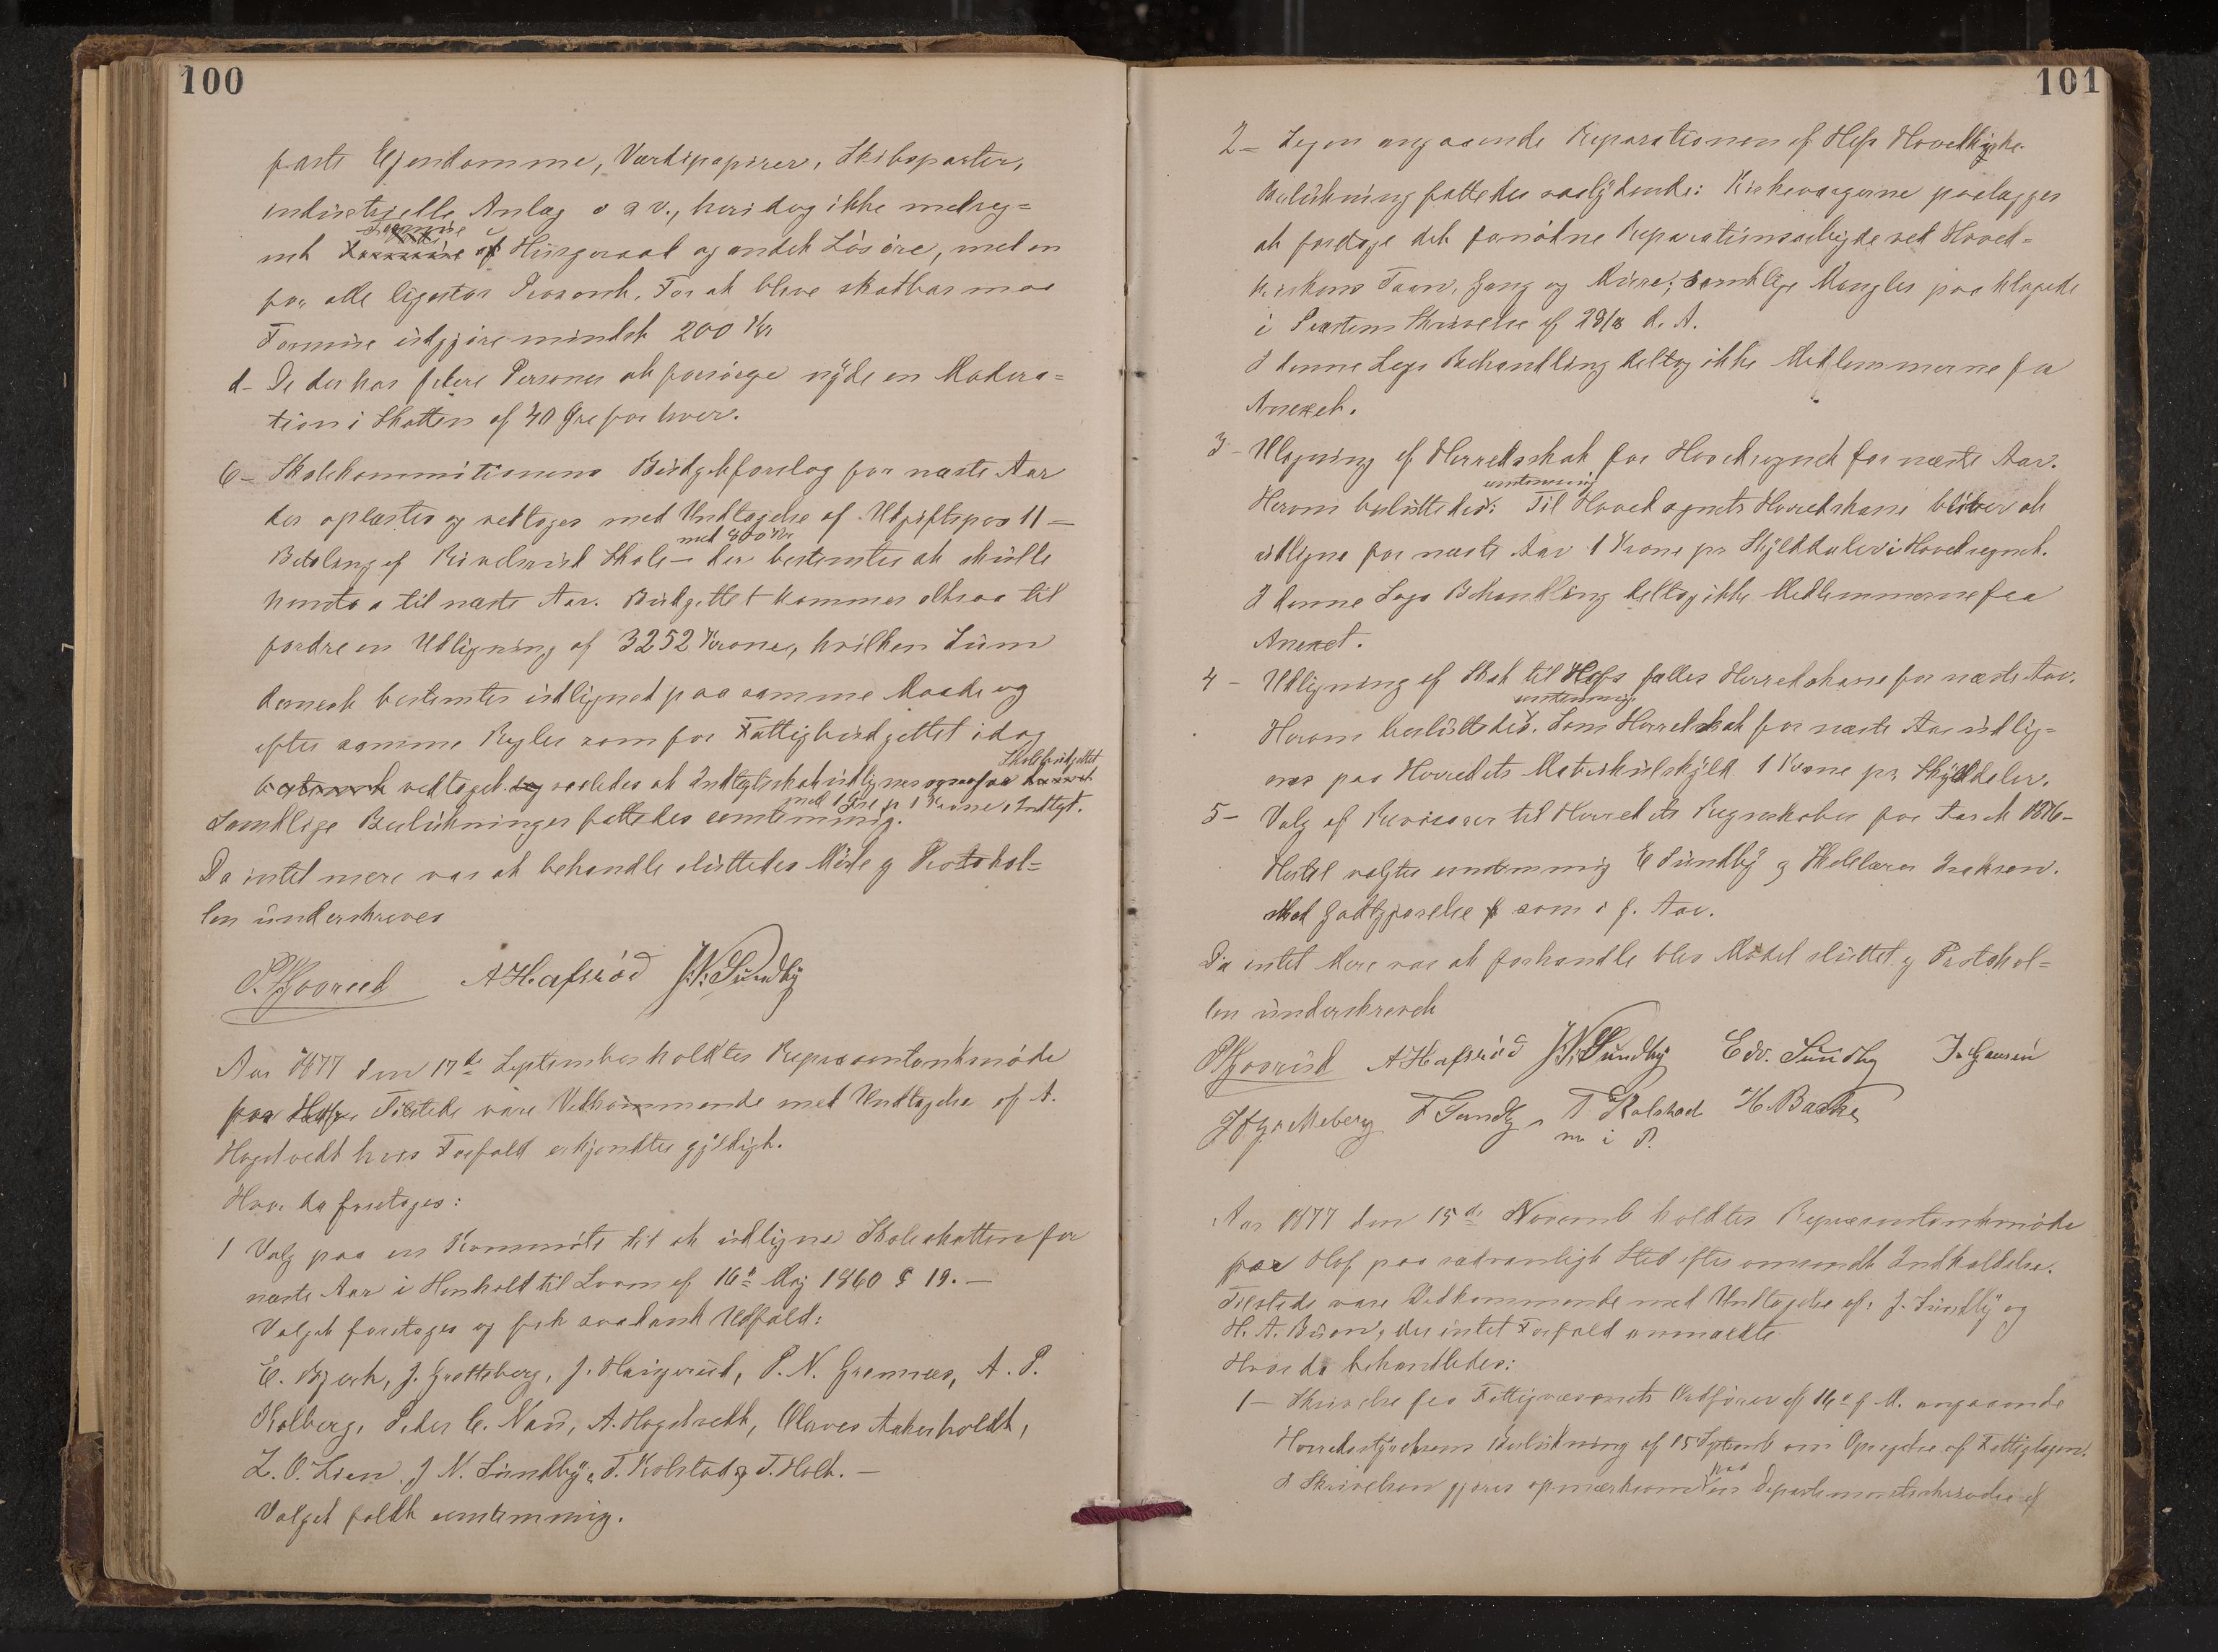 100
faste Ejendomme, Værdipapirer, Skibsparter,
industrielle Anlæg o s v., heri dog ikke medreg-
net Formue i Husgeraad og andet Løsøre, med en
for alle ligestor Procent. For at blive skatbar maa
Formue udgjøre mindst 200 Kr
d- De der har flere Personer at forsørge nyde en Modera-
tion i Skatten af 40 Øre for hver.
6- Skolekommitionens Budgetforslag for næste Aar
der oplæstes og vedtoges med Undtagelse af Udgiftspos 11 -
Betaling af Skole - med 800 Kr der bestemtes at skulle
henstaa til næste Aar. Budgettet kommer altsaa til
fordre en Udligning af 3252 Kroner, hvilken Sum
dernest bestemtes udlignet paa samme Maade og
efter samme Regler som for Fattigbudgettet idag
vedtaget saaledes at Indtægtsskat udlignes ogsaa for Skolebudgettet
med 1 Øre pr 1 Krone Indtægt.
Samtlige Beslutninger fattedes eenstemmig.
Da intet mere var at behandle sluttedes Møde og Protokol-
len underskreves
A Hafsrød J. N. Sundby
Aar 1877 den 17de September holdtes Repræsentantmøde
paa Hof. Tilstede vare Vedkommende med Undtagelse af A.
Hogstvedt hvis Forfald erkjendtes gyldigt.
Hvor da foretoges:
1 Valg paa en Kommite til at udligne Skoleskatten for
næste Aar i Henhold til Loven af 16de Maj 1860 § 19. -
Valget foretoges og fik saadant Udfald:
E. Bjerk, J. Grottsberg, J. Haugerud, P. N. Grennes, A. P.
Kolberg, Peder C. Nau, A. Hogstvedt, Olaves Aakerholdt,
L. O. Lien, J N. Sundby, T. Kolstad og T. Holt. -
Valget faldt eenstemmig.
101
2- Sagen angaaende Reparationen af Hofs Hovedkirke.
Beslutning fattedes saalydende: Kirkeværgerne paalægges
at foretage det fornødne Reparationsarbejde ved Hoved-
kirkens Taarn, Gang og Mure; samtlige Mangler paaklagede
i Præstens Skrivelse af 28/8 d. A.
I denne Sags Behandling deltog ikke Medlemmerne fra
Annexet.
3- Udligning af Herredsskat for Hovedsognet for næste Aar.
Herom besluttedes eenstemmig: Til Hovedsognets Herredskasse bliver at
udligne for næste Aar 1 Krone pr Skylddaler i Hovedsognet.
I denne Sags Behandling deltog ikke Medlemmerne fra
Anexet.
4- Udligning af Skat til Hofs fælles Herredskasse for næste Aar.
Herom besluttedes eenstemmig. Som Herredskat for næste Aar udlig-
nes paa Herredets Matrikulskyld 1 Krone pr. Skylddaler.
5- Valg af Revisorer til Herredets Regnskaber for Aaret 1876-
Hertil valgtes eenstemmig E Sundby og Skolelærer Isaksen.
Med Godtgjørelse som i f. Aar.
Da intet Mere var at forhandle blev Mødet sluttet og Protokol-
len underskrevet
A Hafsrød J. N. Sundby Edv. Sundby
F Sundby T Kolstad H. Bache
m i P.
Aar 1877 den 15de Novemb holdtes Repræsentantmøde
paa Hof paa sædvanligt Sted efter omsendt Indkaldelse.
Tilstede vare Vedkommende med Undtagelse af: J. Sundby og
H. A. Buer, der intet Forfald anmeldte
Hvor da behandledes:
1- Skrivelse fra Fattigvæsenets Ordfører af 16de f M. angaaende
Herredsstyrelsens Beslutning af 15 Septemb om Opsigelse af Fattiglægen.
I Skrivelsen gjøres opmærksom paa en Departementsskrivelse af